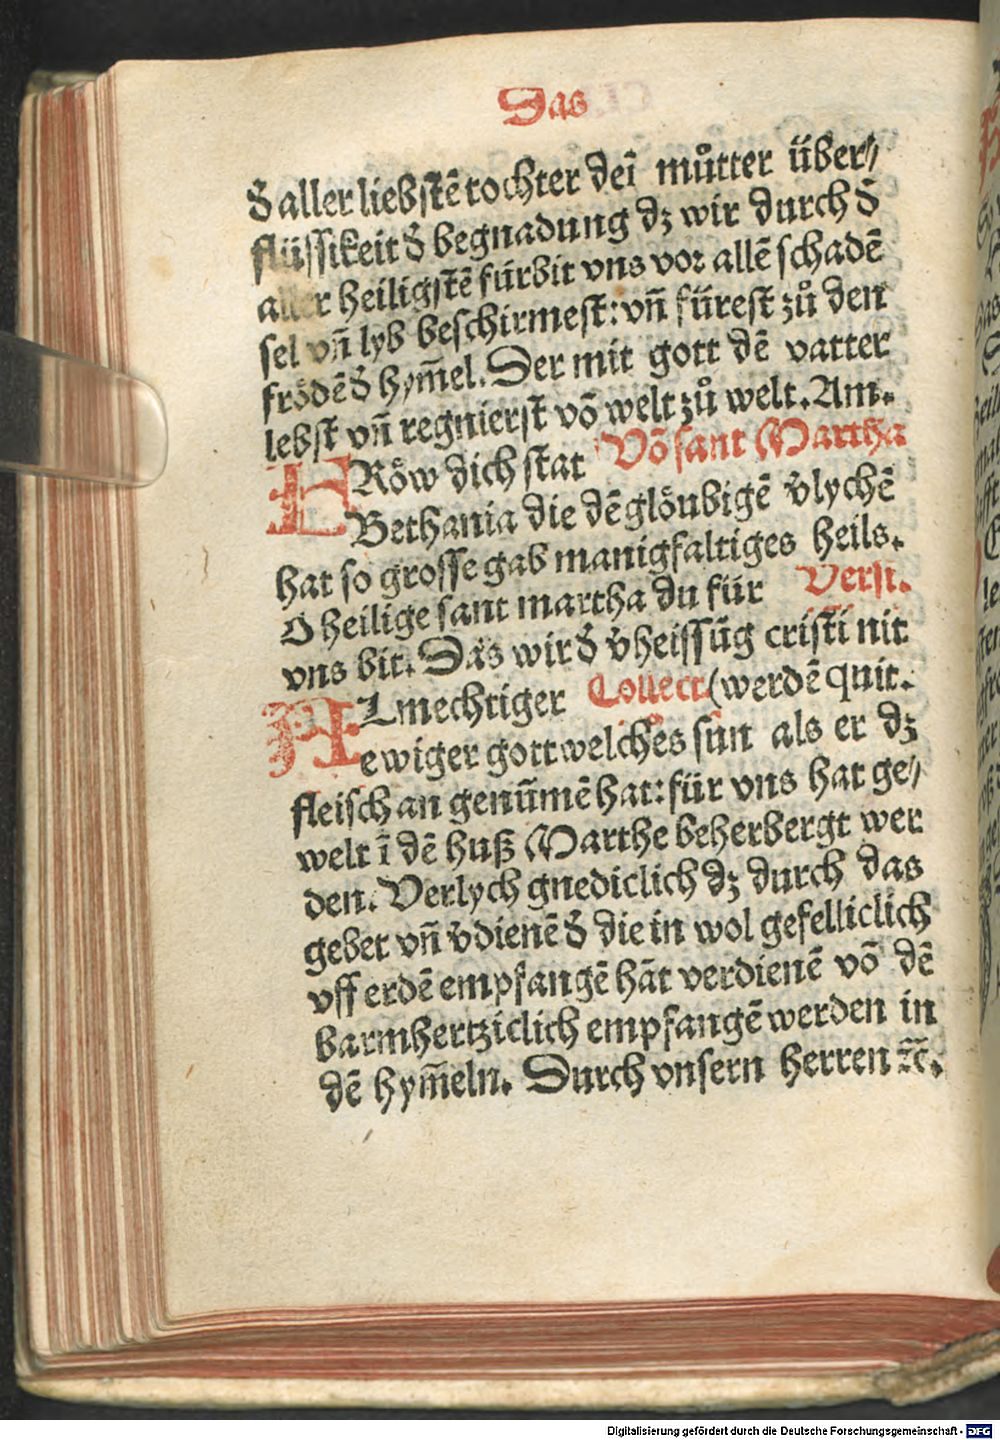 Das
d̄ aller liebstē tochter dei můtter über⸗
flüssikeit d̄ begnadung dz wir durch d̄
aller heiligstē fürbit vns vor allē schadē
sel vñ lyb beschirmest: vñ fürest zů den
frödē d̄ hym̄el. Der mit gott dē vatter
lebst vñ regnierst vō welt zů welt. Am.
FRöw dich stat Vō sant Martha
Bethania die dē glöubigē v̄lychē
hat so grosse gab manigfaltiges heils.
O heilige sant martha du für Vers.
vns bit. Das wir d̄ v̄heissūg cristi nit
ALmechtiger Collect (werdē quit.
ewiger gott welches sůn als er dz
fleisch an genūmē hat: für vns hat ge⸗
welt ī dē huß Marthe beherbergt wer
den. Verlych gnediclich dz durch das
gebet vñ v̄dienē d̄ die in wol gefelliclich
vff erdē empfangē hāt verdienē vō dē
barmhertziclich empfangē werden in
dē hym̄eln. Durch vnsern herren ⁊c̄.
Digitalisierung gefördert durch die Deutsche Forschungsgemeinschaft - DFG